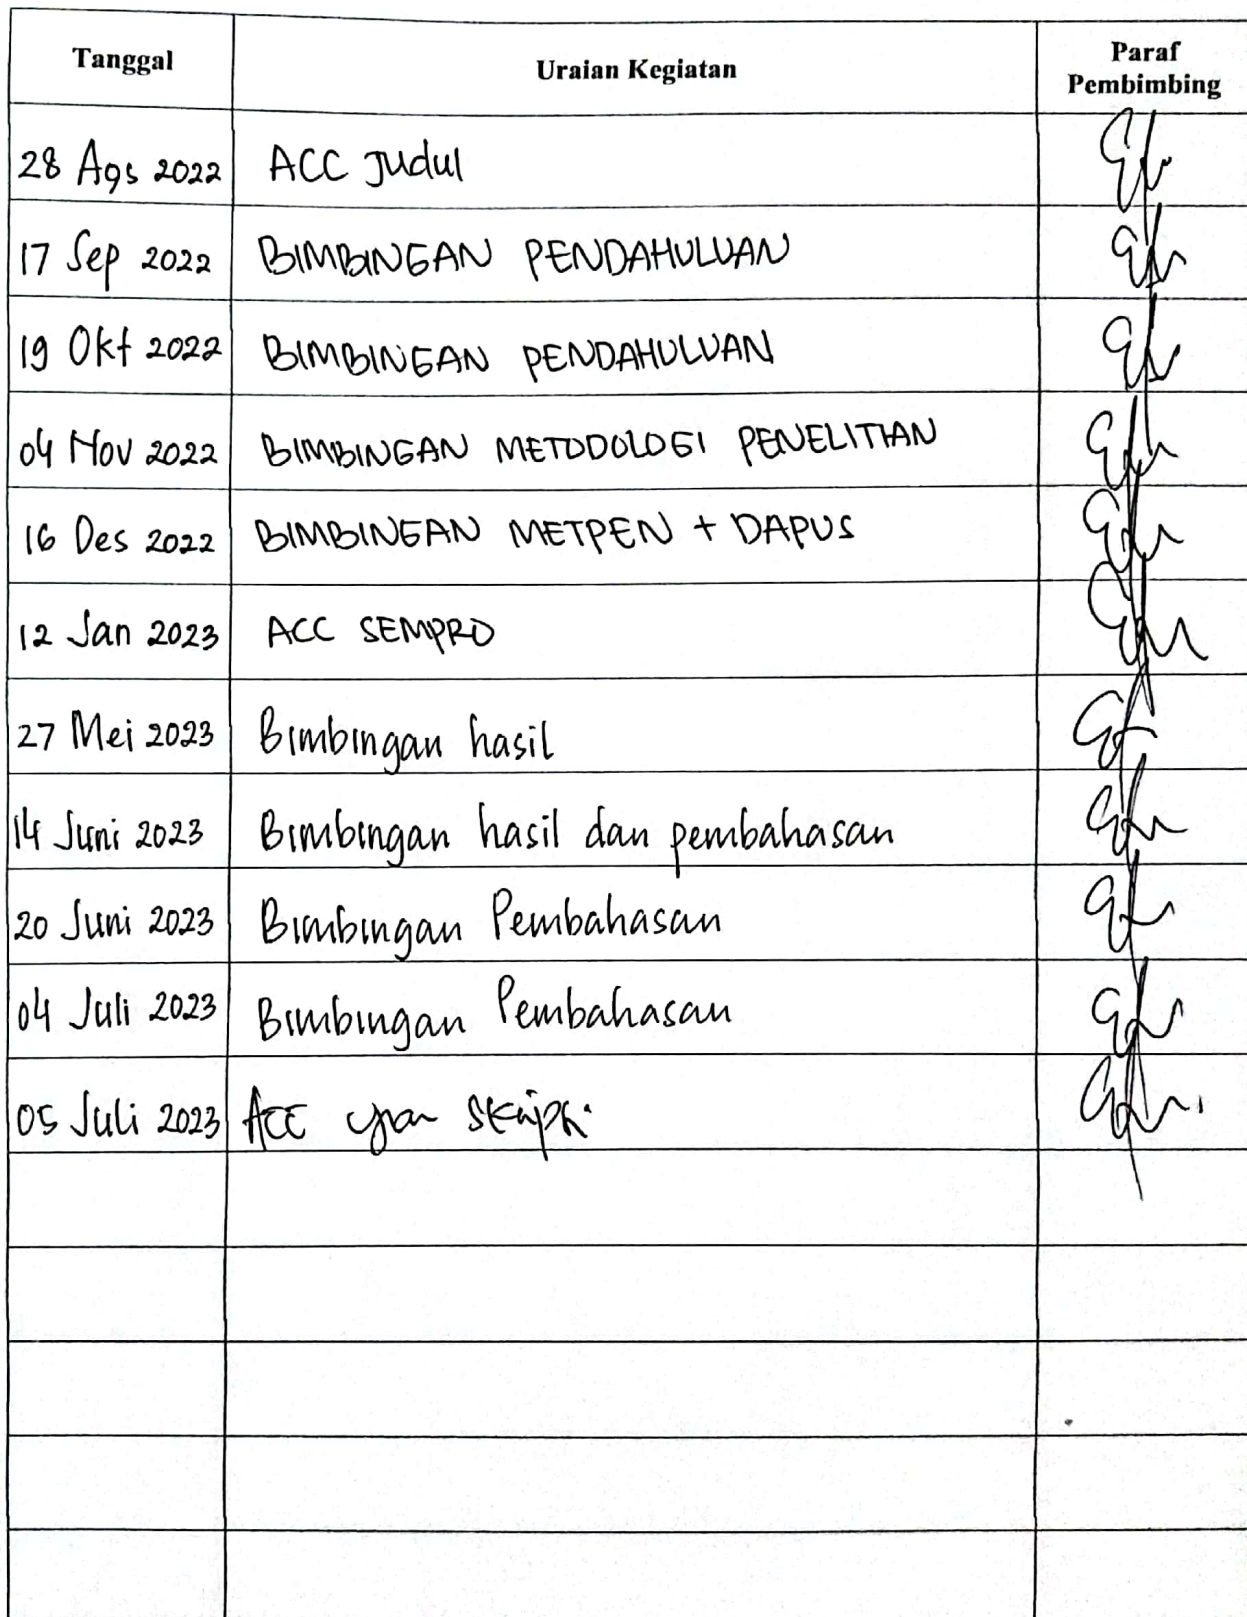 Tanggal
Uraian Kegiatan
Paraf
Pembimbing
28 Ags 2022 ACC Judul
17 Sep 2022 BIMBINGAN PENDAHULUAN
19 Okt 2022 BIMBINGAN PENDAHULUAN
04 Nov 2022 BIMBINGAN METODOLOGI PENELITIAN
16 Des 2022 BIMBINGAN METPEN + DAPUS
12 Jan 2023 ACC SEMPRO
27 Mei 2023 Bimbingan hasil
14 Juni 2023 Bimbingan hasil dan pembahasan
20 Juni 2023 Bimbingan Pembahasan
04 Juli 2023 Bimbingan Pembahasan
05 Juli 2023 ACC skripsi